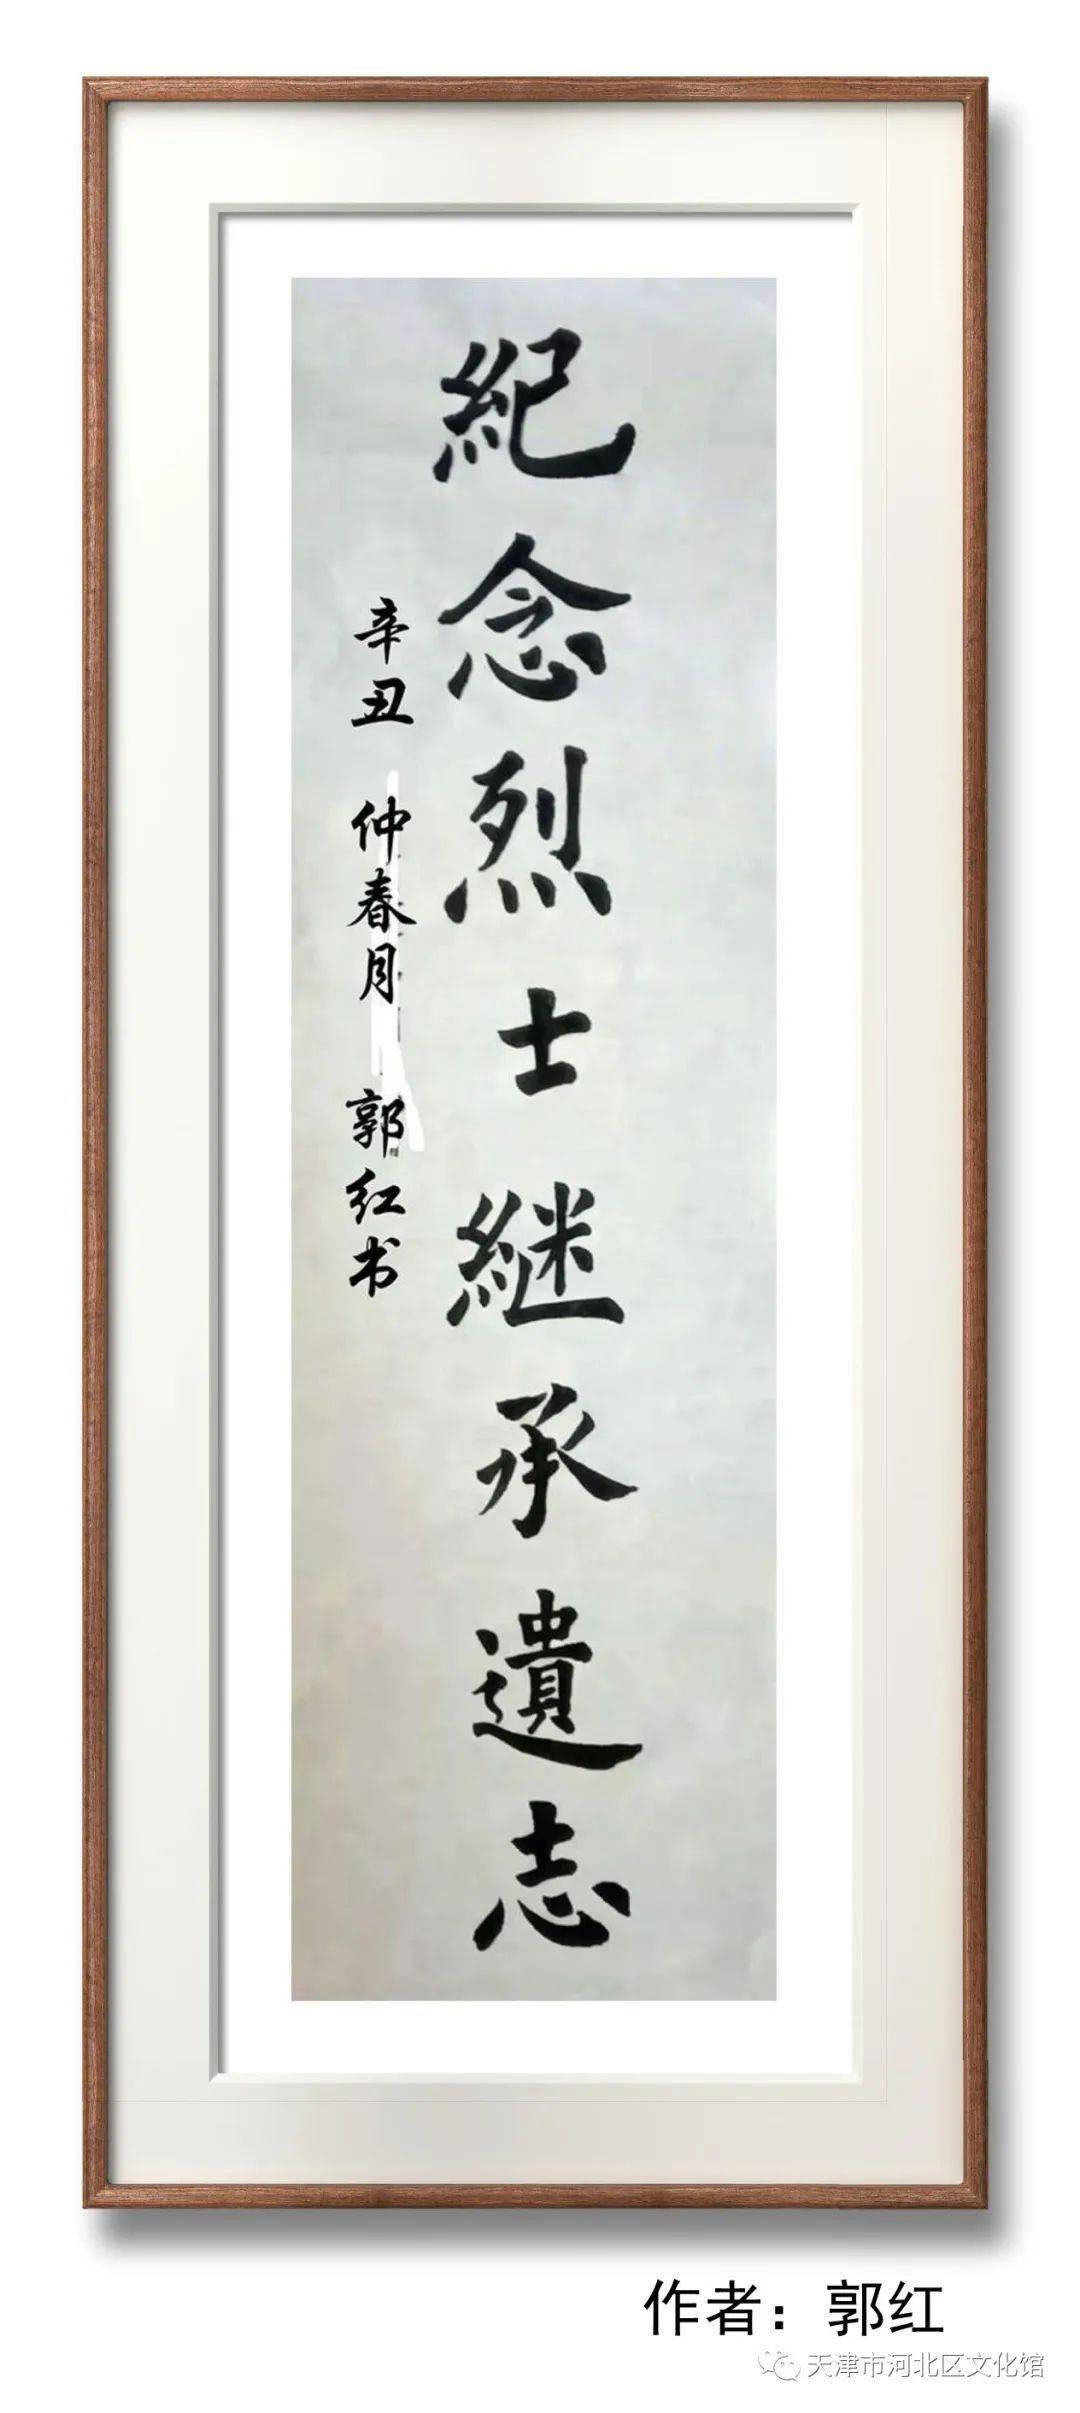 紀念烈士継承遺志
辛丑 仲春月 郭红书
作者：郭红
天津市河北区文化馆